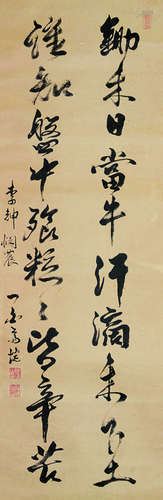 鋤禾日當午汗滴禾下土
誰知盤中飧粒々皆辛苦
李紳憫農